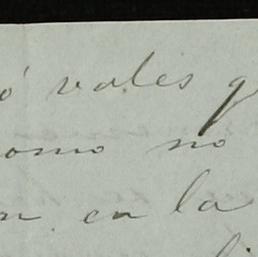 ó vales q
como no
n en la